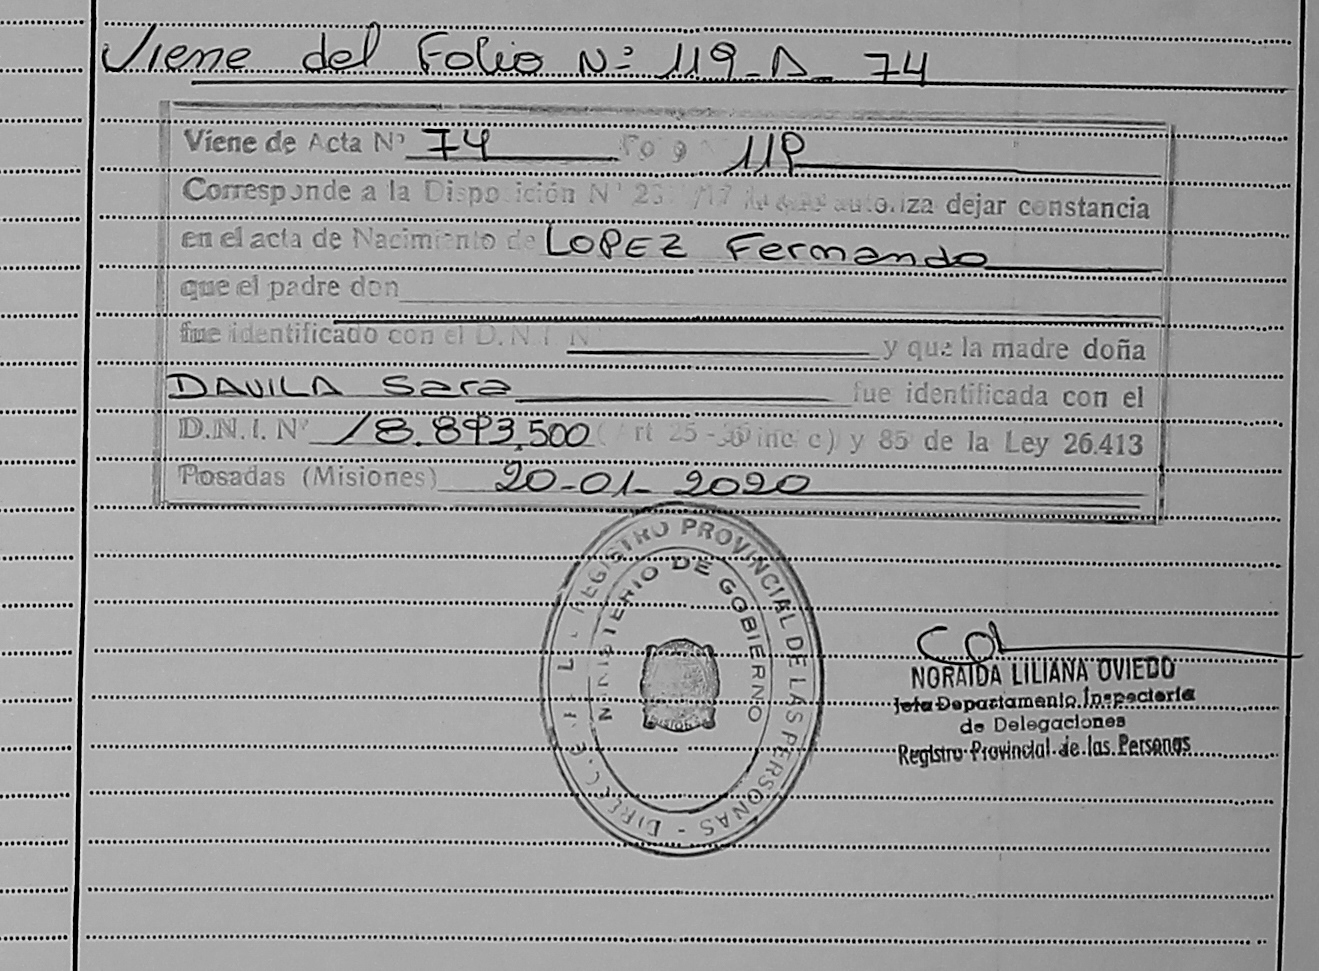 Viene del Folio Nº 119-A- 74
Viene de Acta Nº 74 Folio 119
Corresponde a la Disposición Nº autoriza dejar constancia
en el acta de Nacimiento de LOPEZ Fernando
que el padre don
fue identificado con el D.N.I. Nº y que la madre doña
DAVILA Sara fue identificada con el
D.N.I. Nº 18.893.500 (Art 25 - inc c) y 85 de la Ley 26.413
Posadas (Misiones) 20-01-2020
REGISTRO PROVINCIAL DE LAS PERSONAS -
MINISTERIO DE GOBIERNO
NORAIDA LILIANA OVIEDO
Jefa Departamento Inspectoría
de Delegaciones
Registro Provincial de las Personas